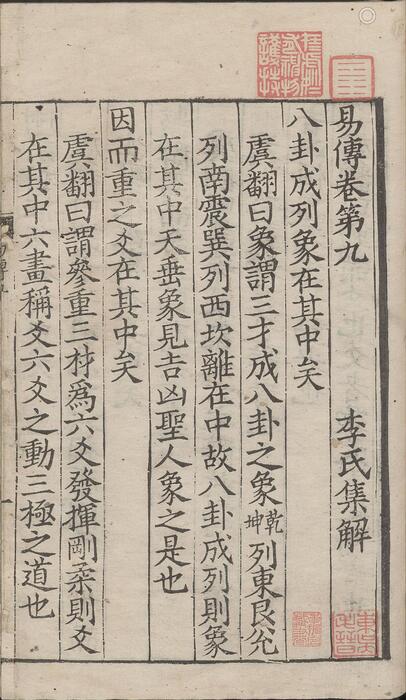 易傳卷第九　李氏集解
八卦成列象在其中矣
虞翻曰象謂三才成八卦之象乾坤列東艮兌
列南震巽列西坎離在中故八卦成列則象
在其中天垂象見吉凶聖人象之是也
因而重之爻在其中矣
虞翻曰謂參重三材爲六爻發揮剛柔則爻
在其中六畫稱爻六爻之動三極之道也